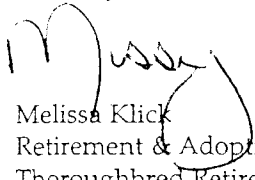 Missy
Melissa Klick
Retirement & Adopt
Thoroughbred Retire